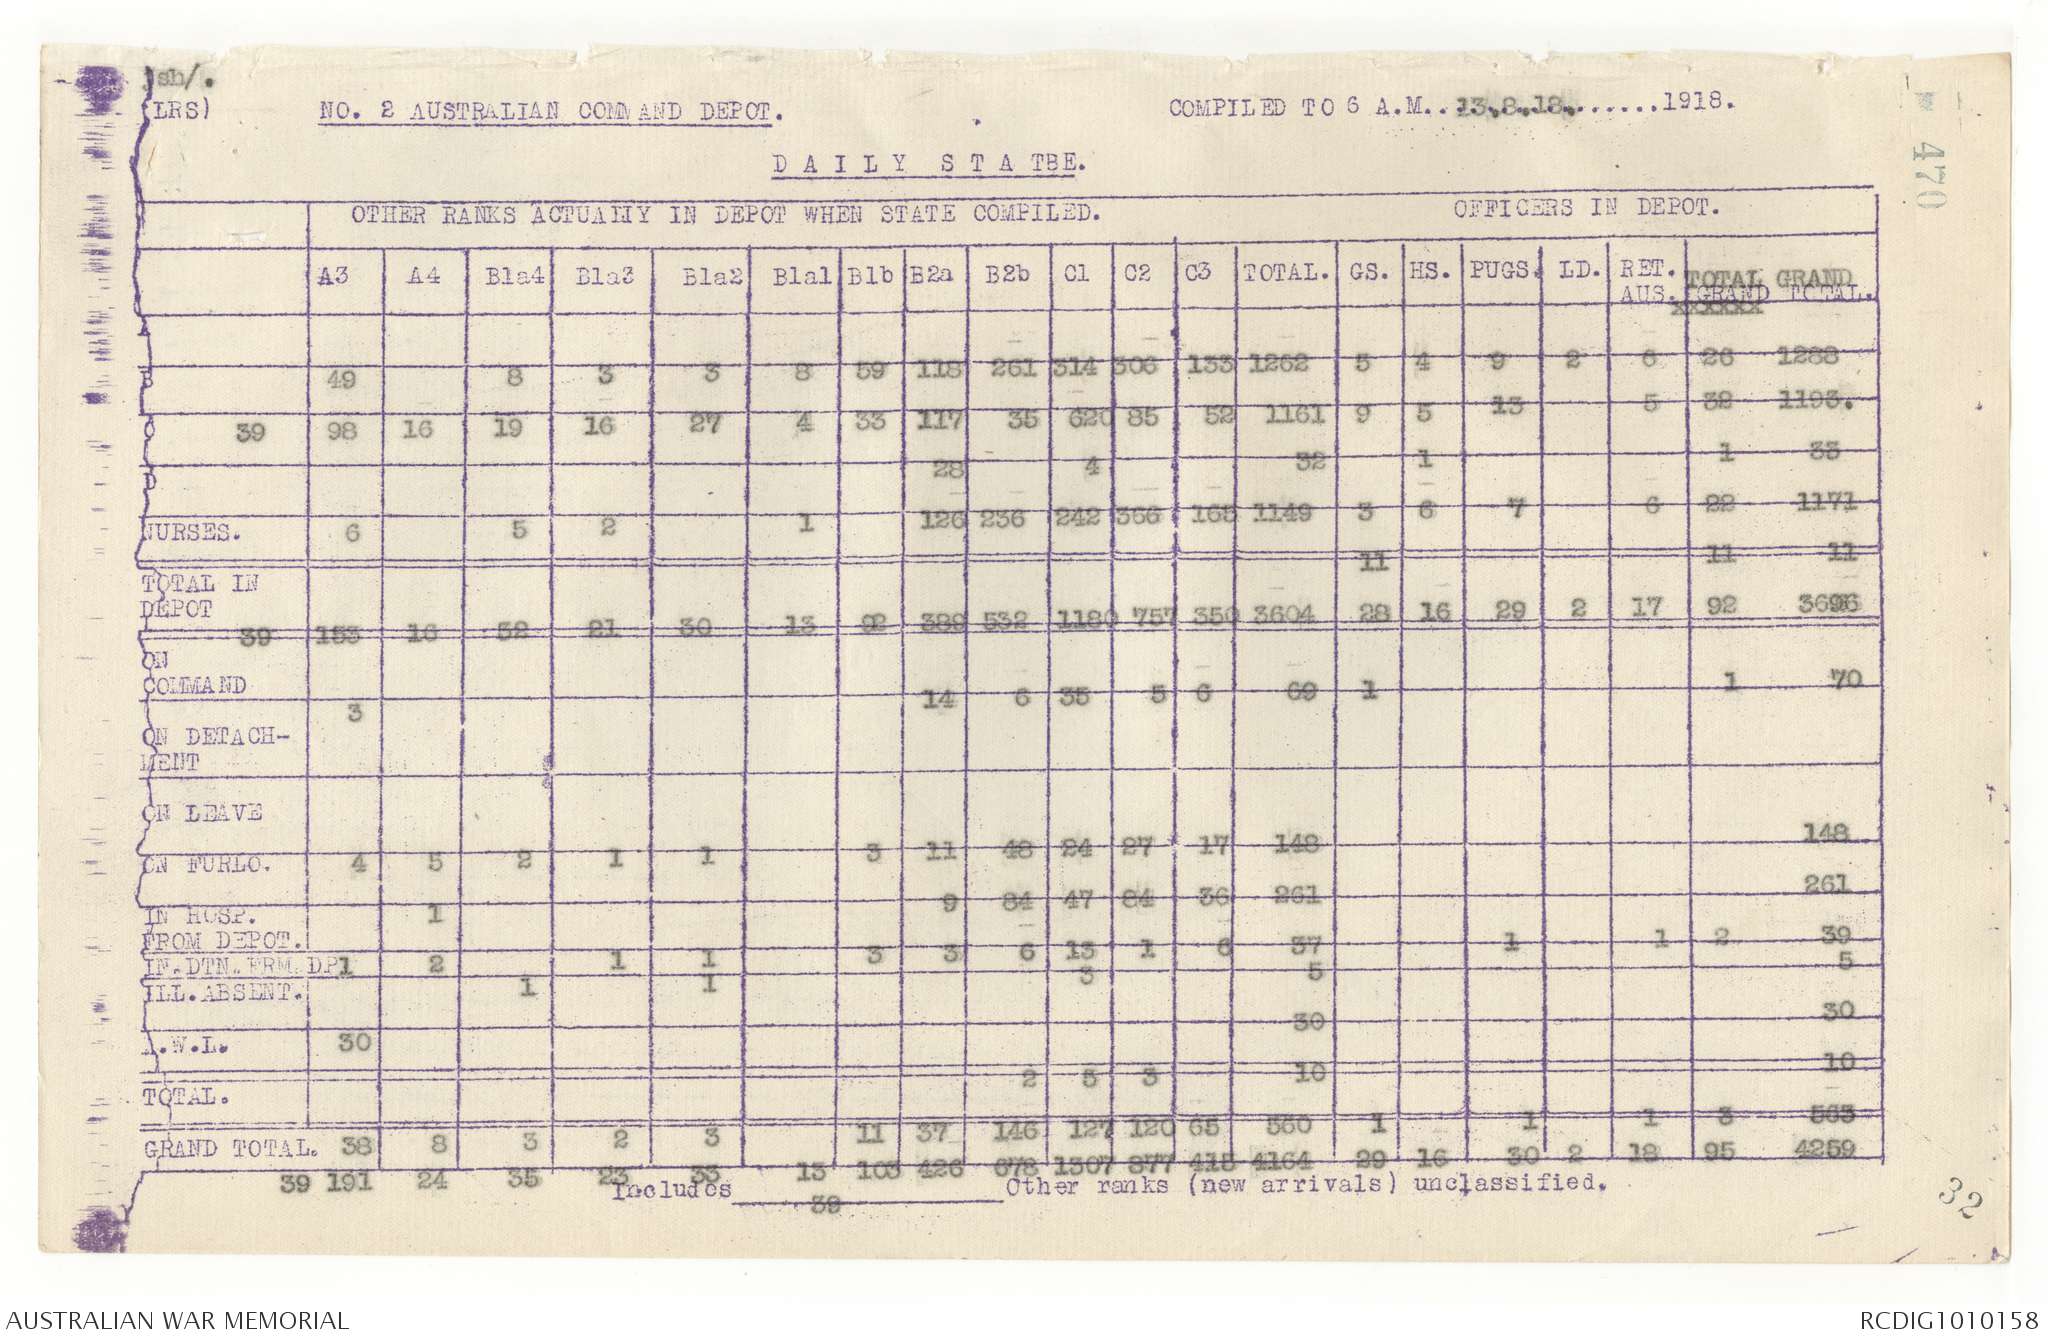 sh/.
(LRS)
NO. 2 AUSTRALIAN COMMAND DEPOT.
COMPILED TO 6 A.M...13.8.18.......1918.
DAILY STATBE.
470
OTHER RANKS ACTUALLY IN DEPOT WHEN STATE COMPILED.
OFFICERS IN DEPOT.
A3 A4 B1a4 B1a3 B1a2 B1a1 B1b B2a B2b C1 C2 C3 TOTAL. GS. HS. PUGS. LD. RET. AUS. TOTAL GRAND
GRAND TOTAL.
xxxxxx
A
49 8 3 3 8 59 118 261 314 306 133 1262 5 4 9 2 6 26 1288
B
39 98 16 19 16 27 4 33 117 35 620 85 52 1161 9 5 13 5 32 1193.
C
28 4 32 1 1 33
D
6 5 2 1 126 236 242 366 165 1149 3 6 7 6 22 1171
NURSES.
11 11 11
TOTAL IN
DEPOT
39 153 16 32 21 30 13 92 389 532 1180 757 350 3604 28 16 29 2 17 92 3696
ON
COMMAND
3 14 6 35 5 6 69 1 1 70
ON DETACH-
MENT
ON LEAVE
4 5 2 1 1 3 11 48 24 27 17 148 148
ON FURLO.
1 9 84 47 84 36 261 261
IN HOSP.
FROM DEPOT.
1 2 1 1 3 3 6 13 1 6 37 1 1 2 39
IN.DTN.FRM.DP.
1 1 3 5 5
ILL.ABSENT.
30 30 30
A.W.L.
2 5 3 10 10
TOTAL.
38 8 3 2 3 11 37 146 127 120 65 560 1 1 1 3 563
GRAND TOTAL.
39 191 24 35 23 33 13 103 426 678 1307 877 415 4164 29 16 30 2 18 95 4259
Includes 39 Other ranks (new arrivals) unclassified.
32
AUSTRALIAN WAR MEMORIAL
RCDIG1010158